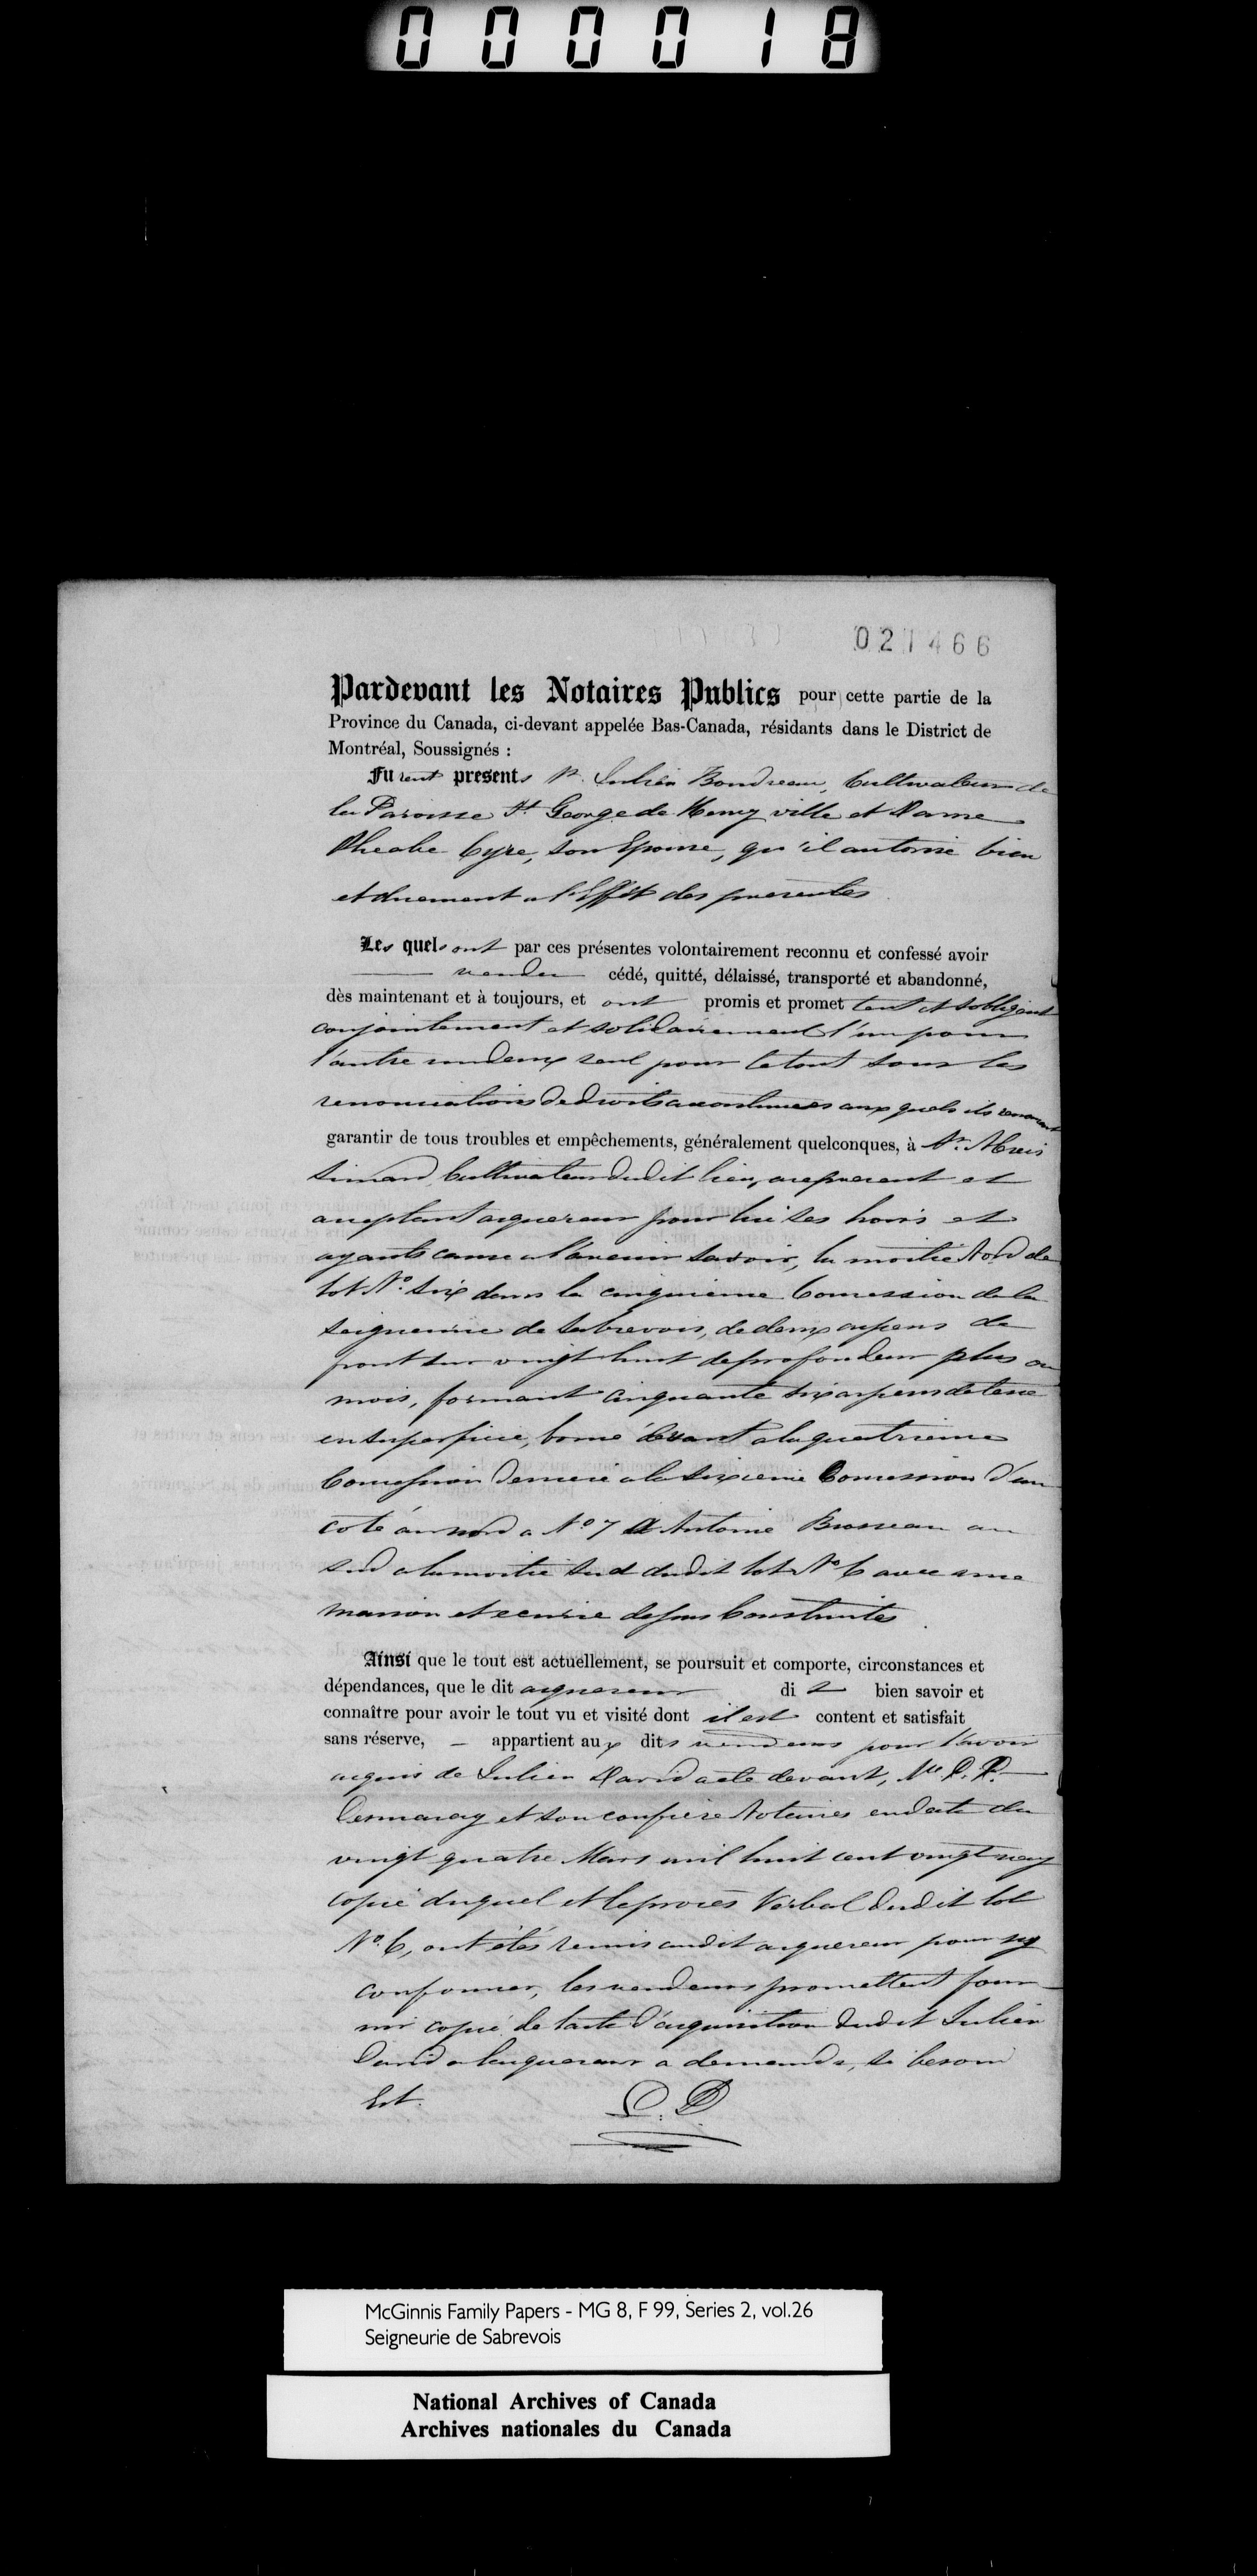 000018
021466
Pardevant les Notaires Publics pour cette partie de la
Province du Canada, ci-devant appelée Bas-Canada, résidants dans le District de
Montréal, Soussignés :
Furent presents Sr. Julien Boudreau, Cultivateur de
la Paroisse St George de Henry ville et Dame
Pheabe Cyre, son Epouse, qu'il autorise bien
et duement a l'Effet des presentes
Les quels ont par ces présentes volontairement reconnu et confessé avoir
vendu cédé, quitté, délaissé, transporté et abandonné,
dès maintenant et à toujours, et ont promis et promettent et s'obligent
conjointement et solidairement l'un pour
l'autre un d'eux seul pour le tout sous les
renonciations de droits accoutumées aux quels ils renoncent
garantir de tous troubles et empêchements, généralement quelconques, à Sr.
Simard, Cultivateur dudit lieu, a ce present et
acceptant acquereur pour lui ses hoirs et
ayants cause a l'avenir savoir, la moitié Nord de
lot No. Six dans la cinquieme Concession de la
Seigneurie de Sabrevois, de deux arpens de
front sur vingt huit de profondeur plus ou
mois, formant cinquante six arpens de terre
en superficie, borné devant a la quatrieme
Concession derriere a la sixieme Concession d'un
coté au nord a No 7 a Antoine Brosseau au
sud a la moitie sud dudit lot No 6 avec une
maison et ecurie dessus Construites.
Ainsi que le tout est actuellement, se poursuit et comporte, circonstances et
dépendances, que le dit acquereur dit bien savoir et
connaître pour avoir le tout vu et visité dont il est content et satisfait
sans réserve, — appartient aux dits vendeurs pour l'avoir
acquis de Julien David acte devant, Me P. P.
Demaray et son confrere Notaires en date du
vingt quatre Mars mil huit cent vingt neuf
copie duquel et le procès Verbal dudit lot
No. 6, ont étés remis audit acquereur pour s'y
conformer, les vendeurs promettent four-
nir copie de l'acte d'acquisition dudit Julien
David a l'acquereur a demande, si besoin
Est.
McGinnis Family Papers - MG 8, F 99, Series 2, vol.26
Seigneurie de Sabrevois
National Archives of Canada
Archives nationales du Canada